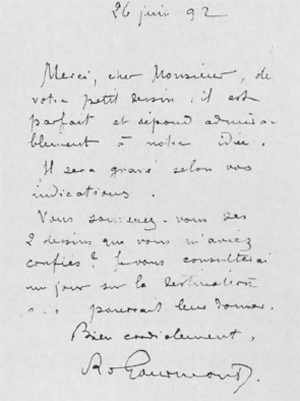 26 juin 92
Merci, cher Monsieur, de
votre petit dessin : il est
parfait et répond admira-
blement à notre idée.
Il sera gravé selon vos
indications.
Vous souvenez-vous des
2 dessins que vous m'aviez
confiés ? Je vous consulterai
un jour sur la destination
... pourrait leur donner.
Bien cordialement,
R de Gourmont